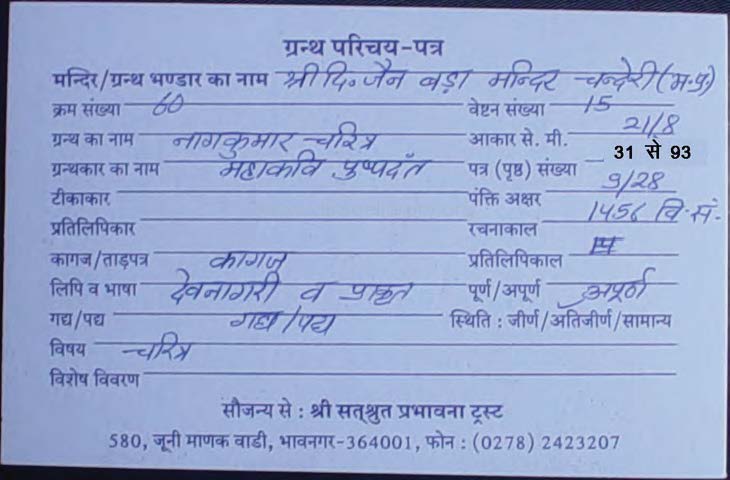 ग्रन्थ परिचय-पत्र
मन्दिर/ग्रन्थ भण्डार का नाम श्री दि॰ जैन बड़ा मन्दिर चन्देरी (म.प्र)
क्रम संख्या 60 वेष्टन संख्या 15
ग्रन्थ का नाम नागकुमार चरित्र आकार से. मी. 21/8
ग्रन्थकार का नाम महाकवि पुष्पदंत पत्र (पृष्ठ) संख्या 31 से 93
टीकाकार पंक्ति अक्षर 9/28
प्रतिलिपिकार रचनाकाल 1456 वि.सं.
कागज/ताड़पत्र कागज प्रतिलिपिकाल
लिपि व भाषा देवनागरी व प्राकृत पूर्ण/अपूर्ण अपूर्ण
गद्य/पद्य गद्य/पद्य स्थिति : जीर्ण/अतिजीर्ण/सामान्य
विषय चरित्र
विशेष विवरण
सौजन्य से : श्री सत्श्रुत प्रभावना ट्रस्ट
580, जूनी माणक वाडी, भावनगर-364001, फोन : (0278) 2423207